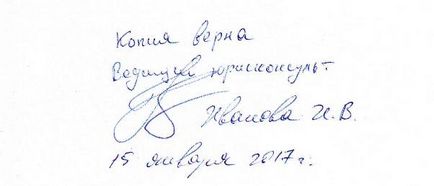 Копия верна
Ведущий юрисконсульт
Иванова И.В.
15 января 2017 г.